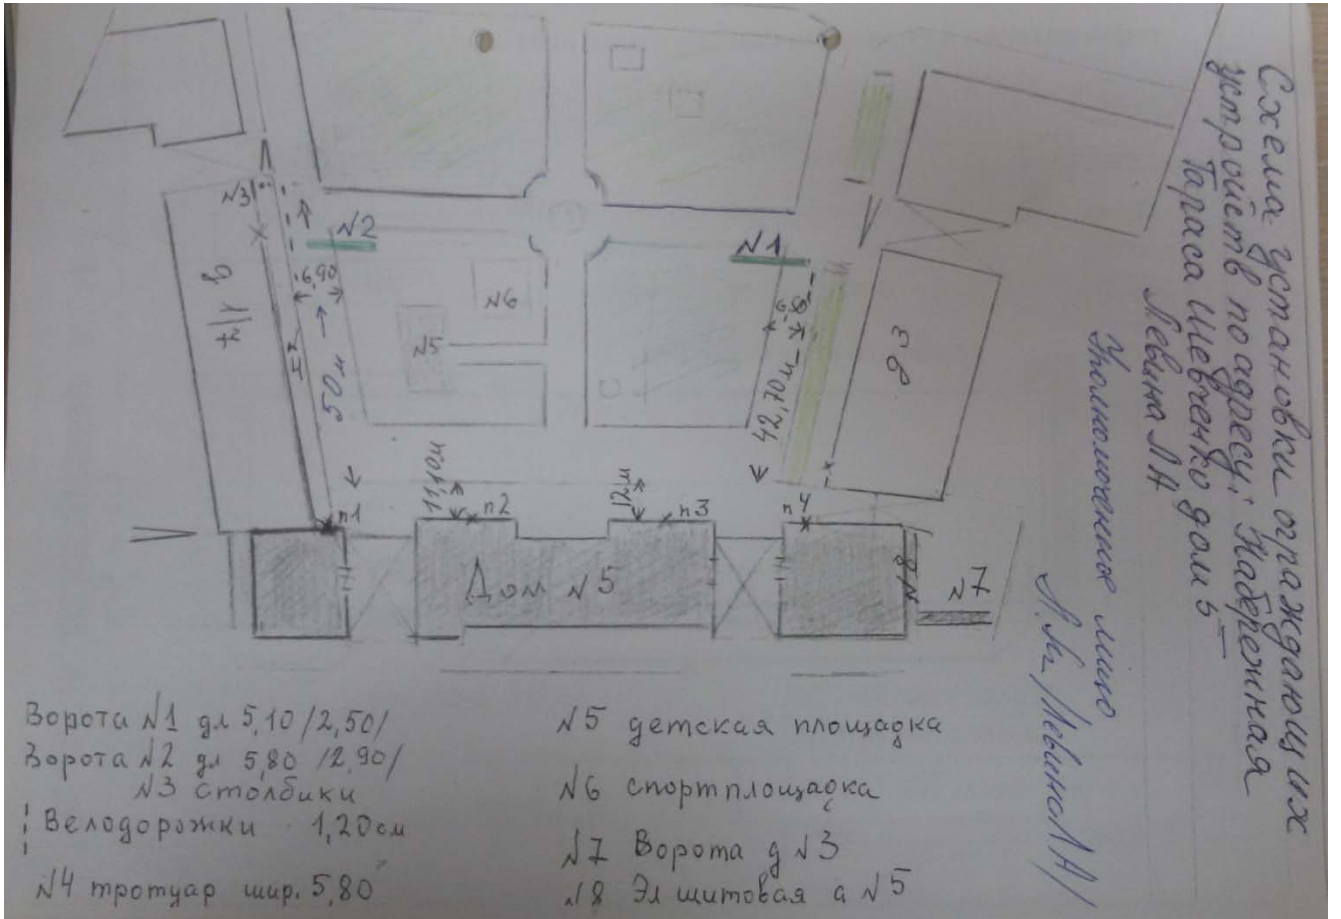 Схема установки ограждающих
устройств по адресу: Набережная
Тараса Шевченко дом 5
Левина ЛА
Уполномоченное лицо
/Левина ЛА/
№3
№2
№1
6,90
50м
№6
№5
42,70м
д 1/7
д 3
11,10м
12м
п1
п2
п3
п4
Дом №5
№8
№7
Ворота №1 дл 5,10 /2,50/
Ворота №2 дл 5,80 /2,90/
№3 столбики
Велодорожки 1,20см
№4 тротуар шир. 5,80
№5 детская площадка
№6 спортплощадка
№7 Ворота д №3
№8 Эл щитовая д №5